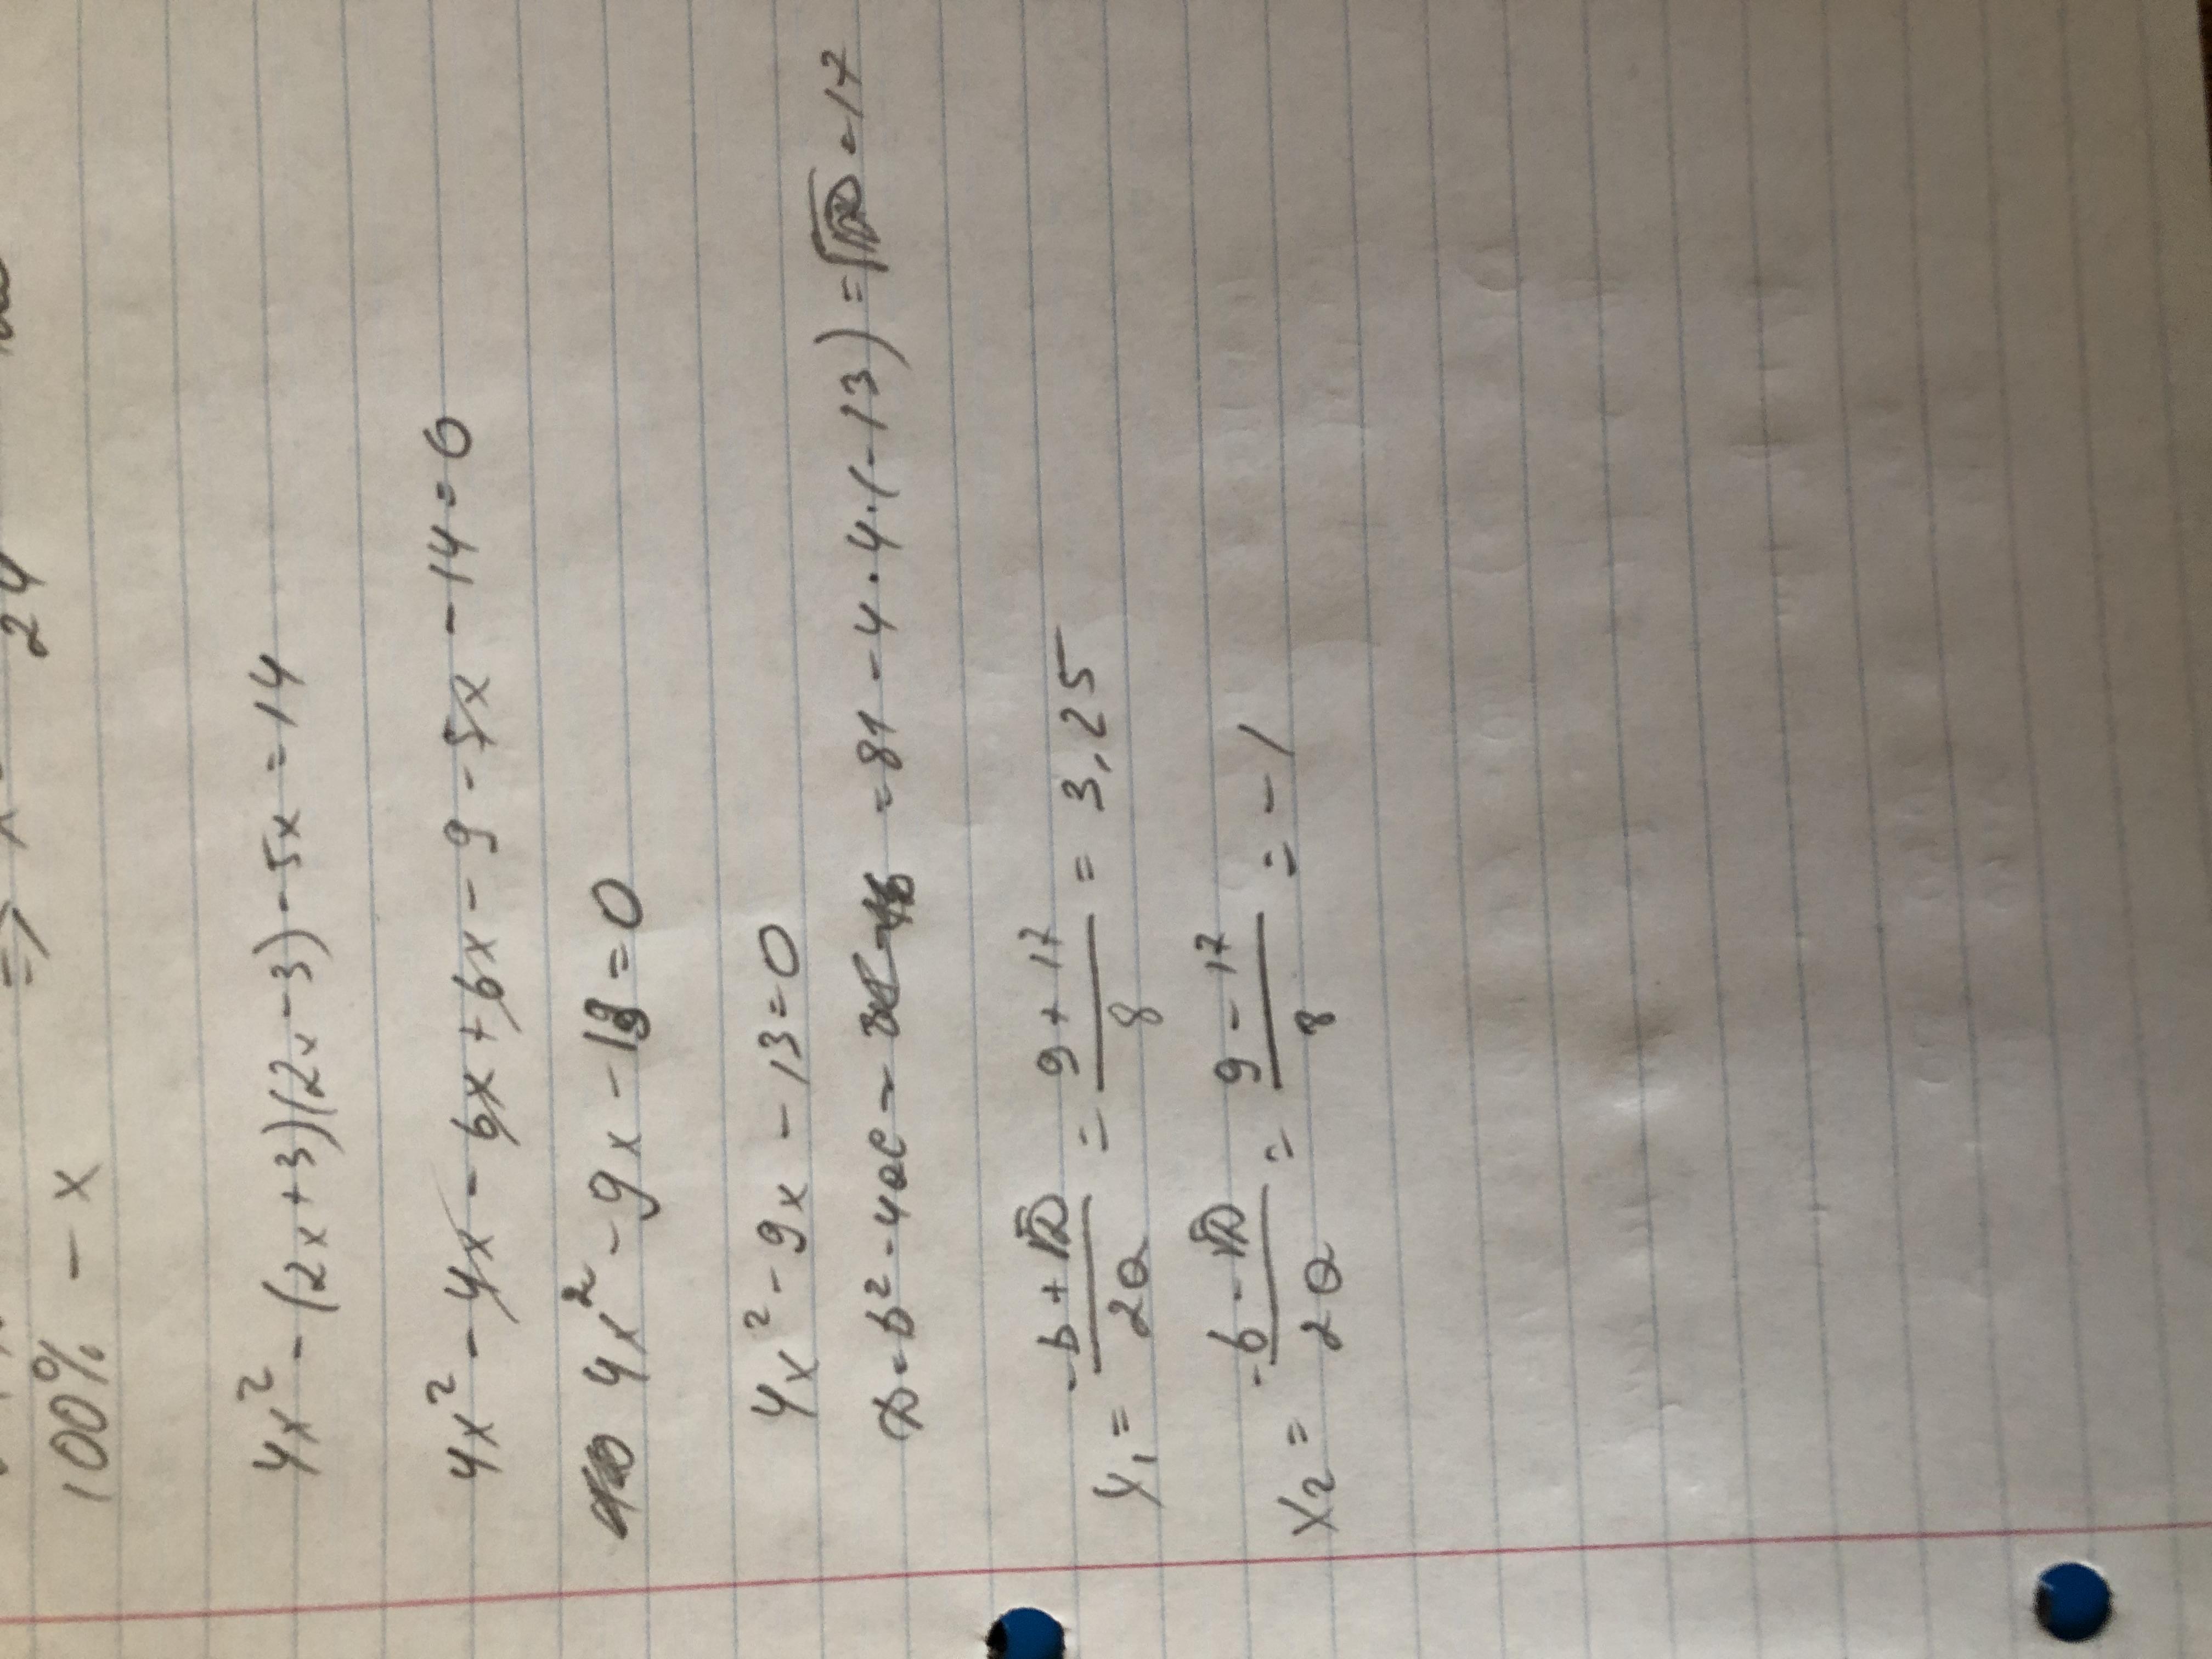 24
=> x
100% - x
4x² - (2x+3)(2x-3) - 5x = 14
4x² - 4x - 6x + 6x - 9 - 5x - 14 = 0
4x² - 9x - 13 = 0
4x² - 9x - 13 = 0
D = b² - 4ac = = 81 - 4 · 4 · (-13) = √D = 17
x₁ = -b + √D / 2a = 9 + 17 / 8 = 3,25
x₂ = -b - √D / 2a = 9 - 17 / 8 = -1